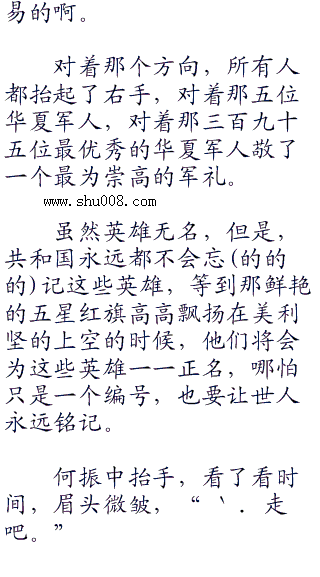 易的啊。
对着那个方向，所有人
都抬起了右手，对着那五位
华夏军人，对着那三百九十
五位最优秀的华夏军人敬了
一个最为崇高的军礼。
www.shu008.com
虽然英雄无名，但是，
共和国永远都不会忘(的的
的)记这些英雄，等到那鲜艳
的五星红旗高高飘扬在美利
坚的上空的时候，他们将会
为这些英雄一一正名，哪怕
只是一个编号，也要让世人
永远铭记。
何振中抬手，看了看时
间，眉头微皱，“ ｀．走
吧。”